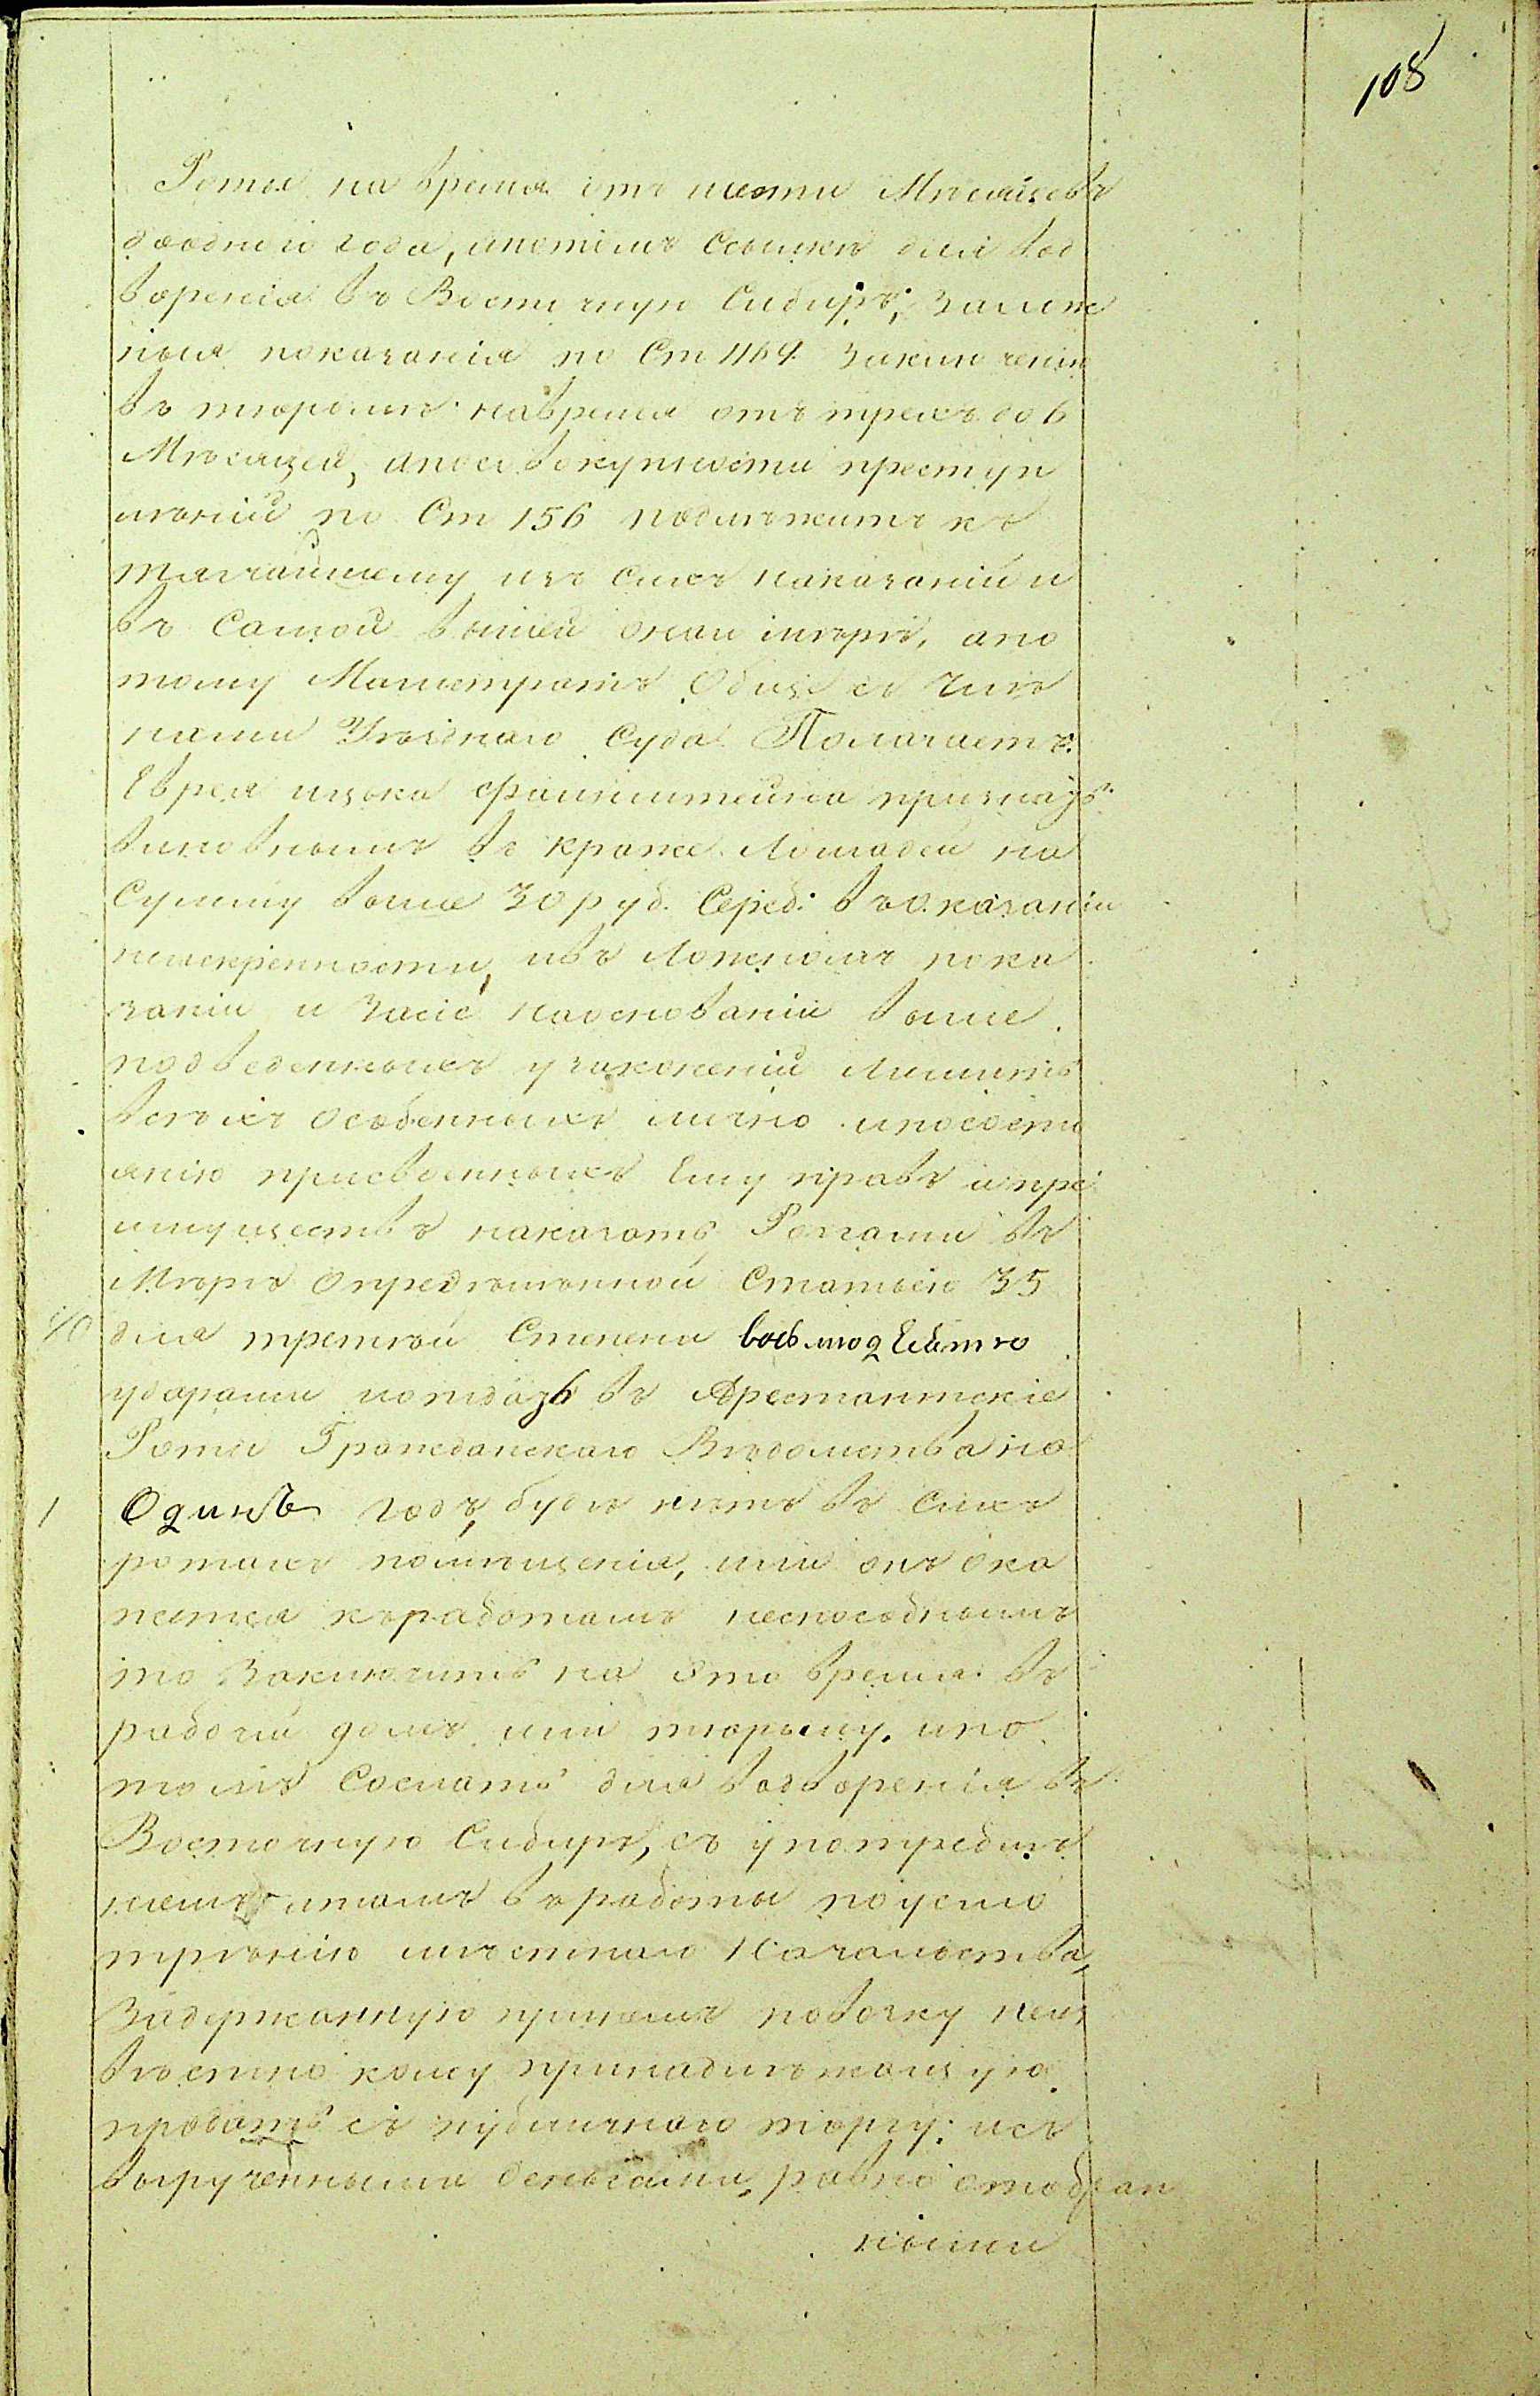 108
Роты на время отъ шести Мѣсяцовъ
доодного года, ипотомъ Ссылкѣ для вод
воренія въ Восточную Сибирь, залож
ныя показанія по Ст 1164 заключенію
въ тюрьмѣ навремя отъ трехъ до 6
Мѣсяцей, апосовокупности преступ
лѣній по Ст 156 подлѣжитъ къ
тягчайшему изъ сихъ наказаній и
въ Самой высшей оного мѣрѣ, апо
тому Магистратъ Обще съ Член
нами Уѣзднаго Суда Полагаетъ:
Еврея ицка Файнштейна признавъ
виновнымъ въ кражѣ Лошадей на
Сумму выше 30 руб. Сереб: въоказаніи
неискренности, ивъ Ложномъ пока
заніи и засіе наоснованіи выше
подведенныхъ узаконеній Лишить
всѣхъ Особенныхъ лично ипососто
янію присвоенныхъ Ему правъ ипре
имуществъ наказать Розгами въ
Мѣрѣ Опредѣленной Статьею 35
для третьей Степени восьмодесятью
ударами иотдать въ Арестантскіе
Роты Гражданскаго Вѣдомства на
1 Одинъ годъ, будѣ нѣтъ въ Сихъ
ротахъ помѣщенія, или онъ ока
жется къработамъ неспособнымъ
то Заключить на это время въ
рабочій домъ или тюрьму, ипо
томъ Сослать для водворенія въ
Восточную Сибирь, съ употребле
ніемъ итамъ въработы поусмо
трѣнію мѣстнаго Начальства,
Задержанную принемъ повозку неиз
вѣстно кому принадлѣжащую
продать съ публичнаго торгу; исъ
вырученными деньгами, равно отобран
ными